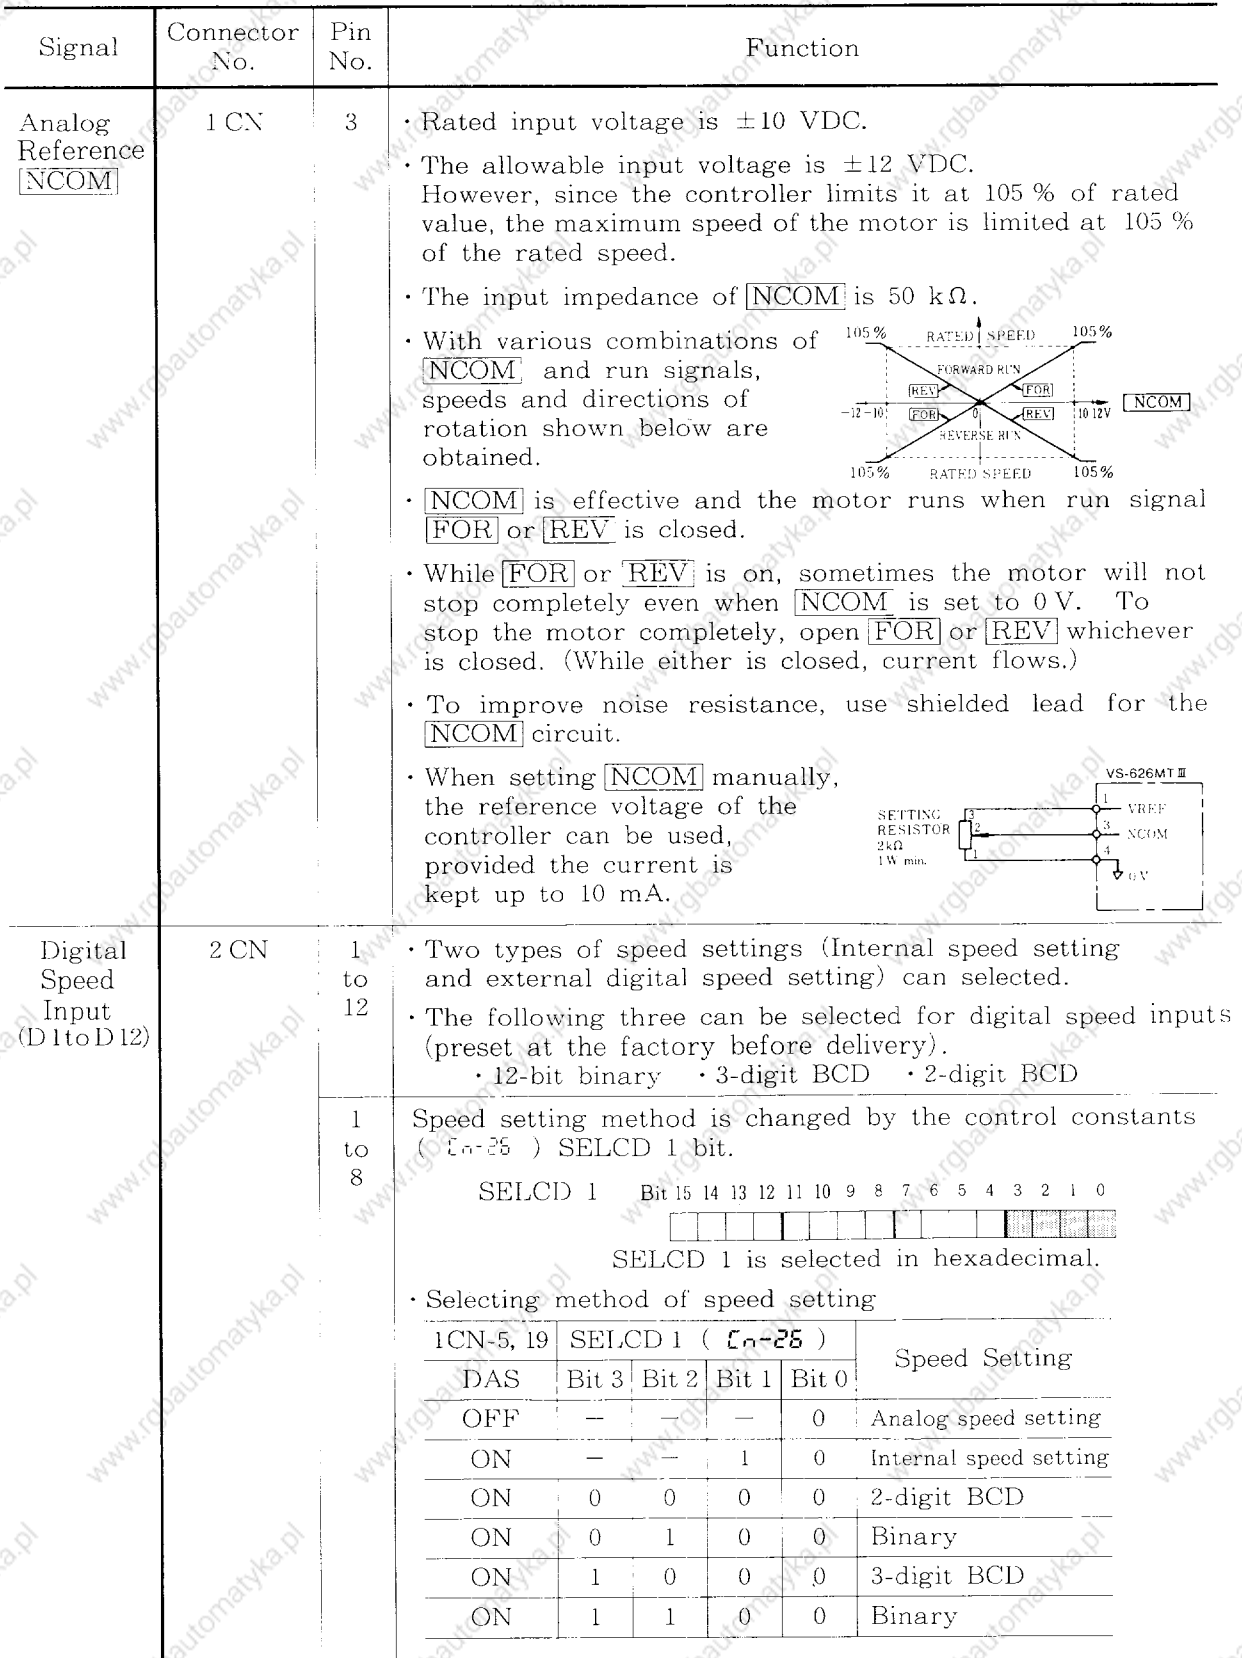 Signal Connector No. Pin No. Function
Analog Reference NCOM 1 CN 3
· Rated input voltage is ±10 VDC.
· The allowable input voltage is ±12 VDC.
However, since the controller limits it at 105 % of rated
value, the maximum speed of the motor is limited at 105 %
of the rated speed.
· The input impedance of NCOM is 50 kΩ.
· With various combinations of
NCOM and run signals,
speeds and directions of
rotation shown below are
obtained.
105% RATED SPEED 105%
FORWARD RUN
REV FOR
-12 -10 0 10 12V NCOM
FOR REV
REVERSE RUN
105% RATED SPEED 105%
· NCOM is effective and the motor runs when run signal
FOR or REV is closed.
· While FOR or REV is on, sometimes the motor will not
stop completely even when NCOM is set to 0 V. To
stop the motor completely, open FOR or REV whichever
is closed. (While either is closed, current flows.)
· To improve noise resistance, use shielded lead for the
NCOM circuit.
· When setting NCOM manually,
the reference voltage of the
controller can be used,
provided the current is
kept up to 10 mA.
VS-626MTⅢ
SETTING
RESISTOR
2kΩ
1W min.
3 1 VREF
2 3 NCOM
1 4
0V
Digital Speed Input (D1 to D12) 2 CN 1 to 12
· Two types of speed settings (Internal speed setting
and external digital speed setting) can selected.
· The following three can be selected for digital speed inputs
(preset at the factory before delivery).
· 12-bit binary · 3-digit BCD · 2-digit BCD
1 to 8
Speed setting method is changed by the control constants
( Cn-26 ) SELCD 1 bit.
SELCD 1 Bit 15 14 13 12 11 10 9 8 7 6 5 4 3 2 1 0
SELCD 1 is selected in hexadecimal.
· Selecting method of speed setting
1CN-5, 19 SELCD 1 ( Cn-26 ) Speed Setting
DAS Bit 3 Bit 2 Bit 1 Bit 0
OFF — — — 0 Analog speed setting
ON — — 1 0 Internal speed setting
ON 0 0 0 0 2-digit BCD
ON 0 1 0 0 Binary
ON 1 0 0 0 3-digit BCD
ON 1 1 0 0 Binary
www.rgbautomatyka.pl